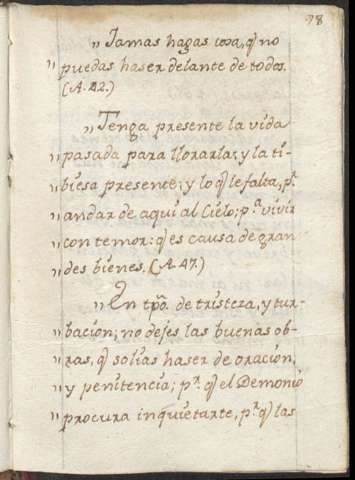 78
„ Jamas hagas cosa, q̃ no
„ puedas haser delante de todos.
(A. 42.)
„ Tenga presente la vida
„ pasada para llorarla; y la ti-
„ biesa presente; y lo q̃ le falta, p.ª
„ andar de aqui al Cielo; p.ª vivir
„ con temor: q̃ es causa de gran
„ des bienes. (A. 47.)
„ En tpõ. de tristeza, y tur-
„ bacion; no dejes las buenas ob-
„ ras, q̃ solias haser de oracion,
„ y penitencia; p.r q̃ el Demonio
„ procura inquietarte, p.r q̃ las